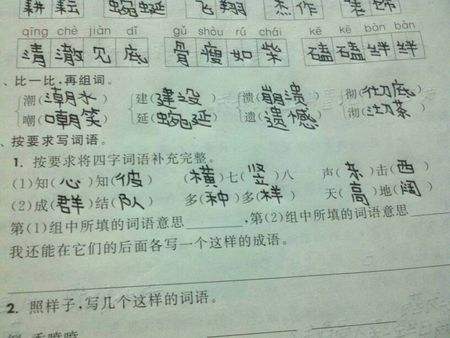 耕耘 蜿蜒 飞翔 杰作 装饰
qīng chè jiàn dǐ gǔ shòu rú chái kē kē bàn bàn
清澈见底 骨瘦如柴 磕磕绊绊
、比一比,再组词。
潮(潮水) 建(建设) 溃(崩溃) 彻(彻底)
嘲(嘲笑) 延(蜿延) 遗(遗憾) 沏(沏茶)
、按要求写词语。
1. 按要求将四字词语补充完整。
(1)知(心)知(彼) (横)七(竖)八 声(东)击(西)
(2)成(群)结(队) 多(种)多(样) 天(高)地(阔)
第(1)组中所填的词语意思______,第(2)组中所填的词语意思
我还能在它们的后面各写一个这样的成语。
2. 照样子,写几个这样的词语。